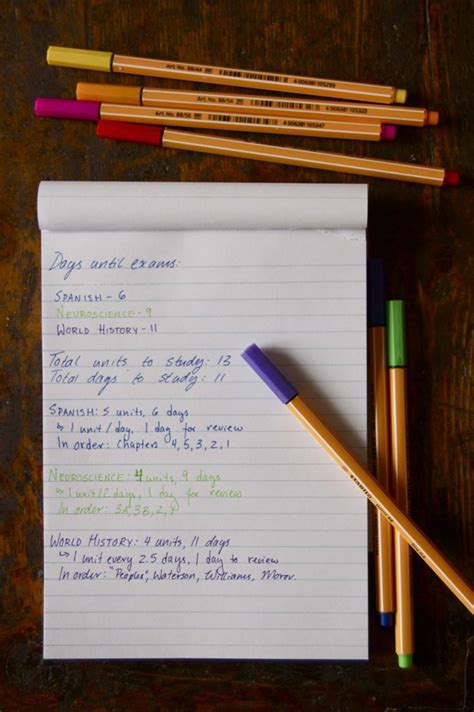 Art.No. 88/44
4 006381 105293
Art.No. 88/54
Art.No. 88/56
4 006381 105347
Days until exams:
SPANISH - 6
NEUROSCIENCE - 9
WORLD HISTORY - 11
Total units to study: 13
Total days to study: 11
SPANISH: 5 units, 6 days
↳ 1 unit/day, 1 day for review
In order: chapters 4, 5, 3, 2, 1
NEUROSCIENCE: 4 units, 9 days
↳ 1 unit/2 days, 1 day for review
In order: 3A, 3B, 2, 1
WORLD HISTORY: 4 units, 11 days
↳ 1 unit every 2.5 days, 1 day to review
In order: "Peoples", Waterson, Williams,